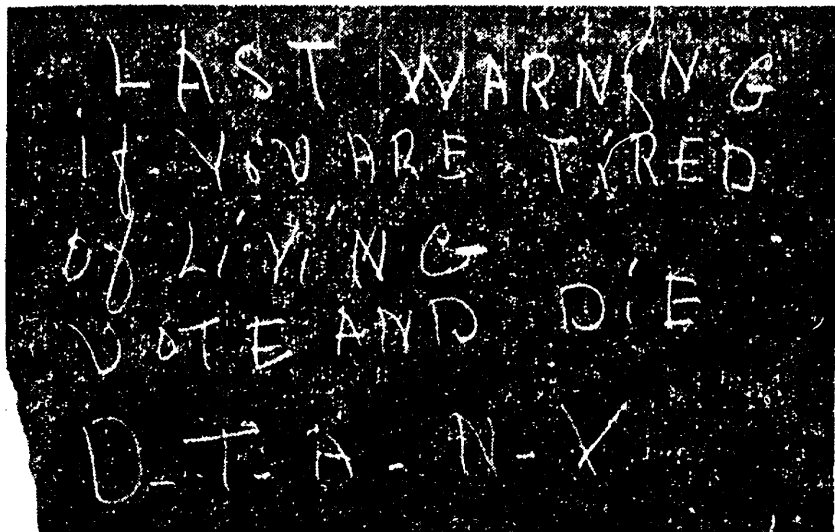 LAST WARNiNG
if YOU ARE TiRED
of LiViNG
VOTE AND DiE
D-T-A-N-Y